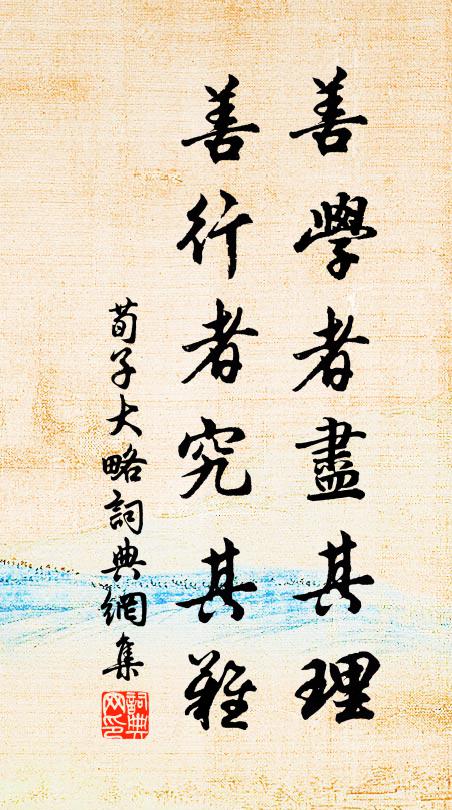 善學者盡其理
善行者究其難
荀子大略詞典網集
詞典網印